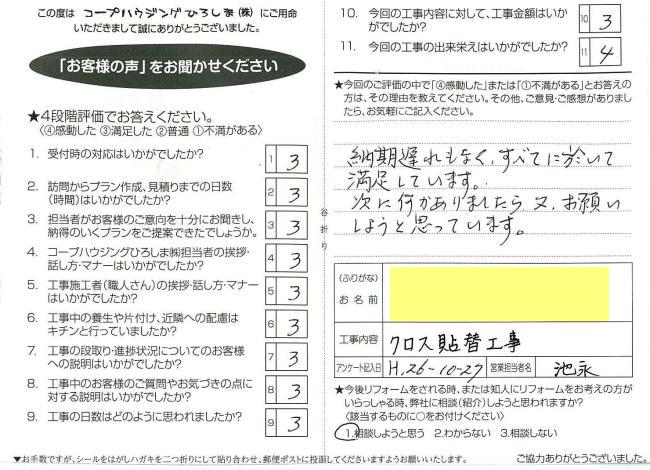 この度は コープハウジングひろしま(株) にご用命
いただきまして誠にありがとうございました。
「お客様の声」をお聞かせください
★4段階評価でお答えください。
〈④感動した ③満足した ②普通 ①不満がある〉
1. 受付時の対応はいかがでしたか?
1 3
2. 訪問からプラン作成、見積りまでの日数
(時間)はいかがでしたか?
2 3
3. 担当者がお客様のご意向を十分にお聞きし、
納得のいくプランをご提案できたでしょうか。
3 3
4. コープハウジングひろしま㈱担当者の挨拶・
話し方・マナーはいかがでしたか?
4 3
5. 工事施工者(職人さん)の挨拶・話し方・マナー
はいかがでしたか?
5 3
6. 工事中の養生や片付け、近隣への配慮は
キチンと行っていましたか?
6 3
7. 工事の段取り・進捗状況についてのお客様
への説明はいかがでしたか?
7 3
8. 工事中のお客様のご質問やお気づきの点に
対する説明はいかがでしたか?
8 3
9. 工事の日数はどのように思われましたか?
9 3
▼お手数ですが、シールをはがしハガキを二つ折りにして貼り合わせ、郵便ポストに投函してくださいますようお願いいたします。
谷折り
10. 今回の工事内容に対して、工事金額はいか
がでしたか?
10 3
11. 今回の工事の出来栄えはいかがでしたか?
11 4
★今回のご評価の中で「④感動した」または「①不満がある」とお答え
の方は、その理由を教えてください。その他、ご意見・ご感想がありまし
たら、お気軽にご記入ください。
納期遅れもなく、すべてに於いて
満足しています。
次に何かありましたら又、お願い
しようと思っています。
(ふりがな)
お名前
工事内容 クロス貼替工事
アンケート記入日 H.26-10-27 営業担当者名 池永
★今後リフォームをされる時、または知人にリフォームをお考えの方が
いらっしゃる時、弊社に相談(紹介)しようと思われますか?
〈該当するものに○をお付けください〉
1.相談しようと思う 2.わからない 3.相談しない
ご協力ありがとうございました。